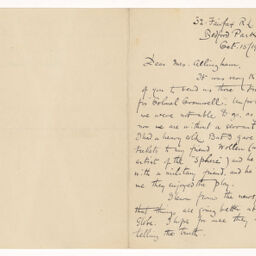 32. Fairfax Rd
Bedford Park
Oct. 15/19
Dear Mrs. Allingham.
It was very
of you to send us those
for Colonel Cromwell:
we were not able to go, as
now we are without a servant
I had a heavy cold. But I gave
tickets to my friend Wollen
artist of the "Sphere") and he
with a military friend, and he
me they enjoyed the play.
I learn from the news
that things are going better at
Globe. I hope for once they
telling the truth.